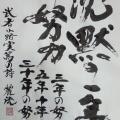 沈黙の主
努力
三年の努
五年十年
三十年の努
武者小路実篤の詩